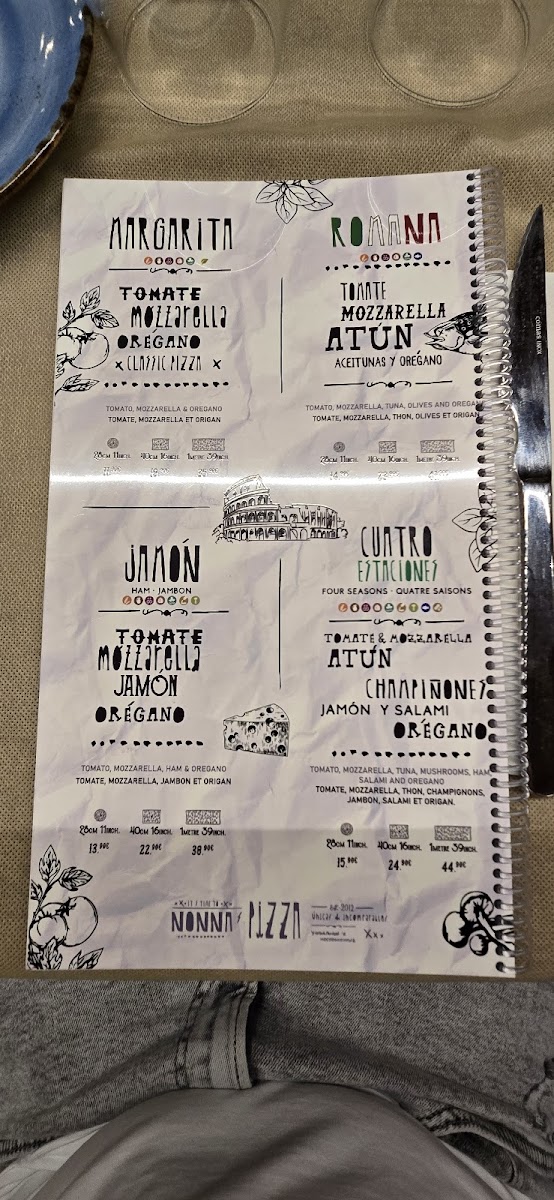 MARGARITA
TOMATE
MOZZARELLA
ORÉGANO
x CLASSIC PIZZA x
TOMATO, MOZZARELLA & OREGANO
TOMATE, MOZZARELLA ET ORIGAN
28CM 11INCH. 40CM 16INCH. 1METRE 39INCH.
ROMANA
TOMATE
MOZZARELLA
ATÚN
ACEITUNAS Y ORÉGANO
TOMATO, MOZZARELLA, TUNA, OLIVES AND OREGA
TOMATE, MOZZARELLA, THON, OLIVES ET ORIGAN
28CM 11INCH. 40CM 16INCH. 1METRE 39INCH.
JAMÓN
HAM · JAMBON
TOMATE
MOZZARELLA
JAMÓN
ORÉGANO
TOMATO, MOZZARELLA, HAM & OREGANO
TOMATE, MOZZARELLA, JAMBON ET ORIGAN
28CM 11INCH. 40CM 16INCH. 1METRE 39INCH.
13.90€ 22.90€ 38.90€
CUATRO
ESTACIONES
FOUR SEASONS · QUATRE SAISONS
TOMATE & MOZZARELLA
ATÚN
CHAMPIÑONES
JAMÓN Y SALAMI
ORÉGANO
TOMATO, MOZZARELLA, TUNA, MUSHROOMS, HAM
SALAMI AND OREGANO
TOMATE, MOZZARELLA, THON, CHAMPIGNONS,
JAMBON, SALAMI ET ORIGAN.
28CM 11INCH. 40CM 16INCH. 1METRE 39INCH.
15.90€ 24.90€ 44.90€
NONNA PIZZA
est. 2012
COMAS INOX